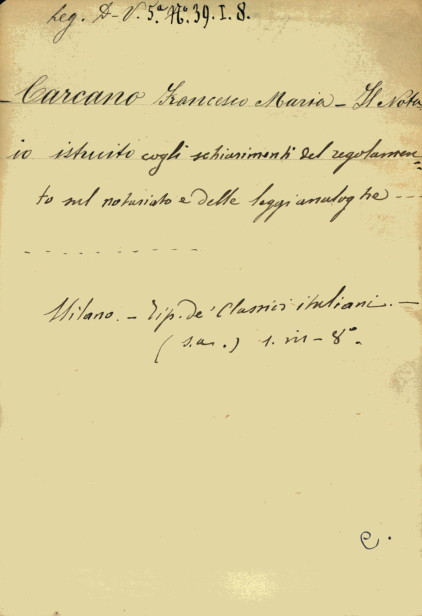 Leg. D-V. 5.ª N.º 39. I. 8.
Carcano Francesco Maria - Il Nota-
io istruito cogli schiarimenti del regolamen-
to sul notariato e delle leggi analoghe ---
Milano. - Tip. de' Classici italiani. -
(s.a.) 1. in - 8º.
e.